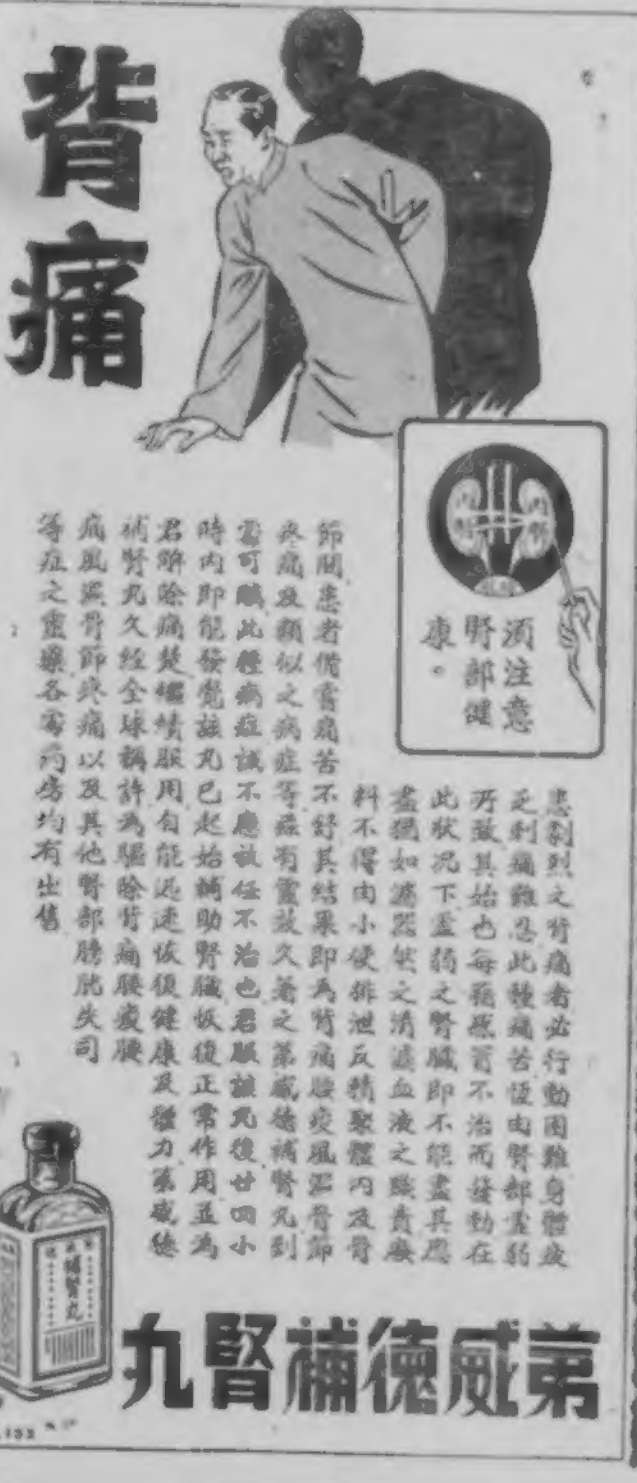 背痛
內腎
內腎
須注意
腎部健
康。
患劇烈之背痛者必行動困難身體疲
乏刺痛難忍此種痛苦恆由腎部虛弱
所致其始也每獗忽不治而發動在
此狀況下虛弱之腎臟即不能盡其應
盡猶如濾器然之清濾血液之職責廢
料不得由小便排泄反積聚體內及骨
節間患者備嘗痛苦不舒其結果即為背痛腰痠風濕骨節
疼痛及類似之病症等茲有靈效久著之第威德補腎丸到
處可購此種病症誠不應放任不治也君服該丸後廿四小
時內即能發覺該丸已起始輔助腎臟恢復正常作用並為
君解除痛楚繼續服用自能迅速恢復健康及體力第威德
補腎丸久經全球稱許為驅除背痛腰痠腰
痛風濕骨節疼痛以及其他腎部膀胱失司
等症之靈藥各家药房均有出售
補腎丸
第威德補腎丸